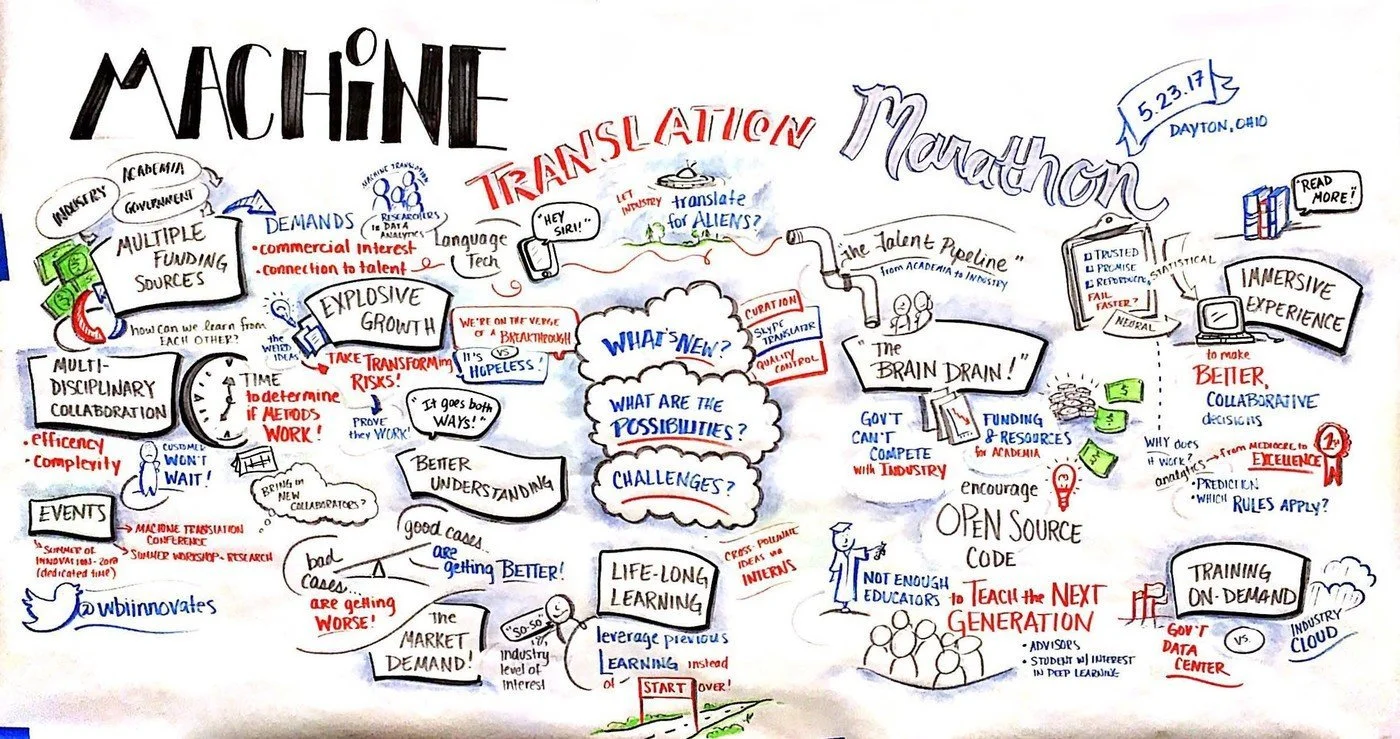 MACHINE
TRANSLATION
Marathon
5.23.17
DAYTON, OHIO
INDUSTRY
ACADEMIA
GOVERNMENT
MULTIPLE
FUNDING
SOURCES
how can we learn from
EACH OTHER?
DEMANDS
• commercial interest
• connection to talent
MACHINE TRANSLATION
RESEARCHERS
IN DATA
ANALYTICS
Language
Tech
"HEY
SIRI!"
LET
INDUSTRY
translate
for ALIENS?
EXPLOSIVE
GROWTH
the
WEIRD
IDEAS
TAKE TRANSFORMING
RISKS!
PROVE
they WORK!
WE'RE ON THE VERGE
OF A BREAKTHROUGH
VS
IT'S
HOPELESS!
MULTI-
DISCIPLINARY
COLLABORATION
• efficency
• complexity
TIME
to determine
if METODS
WORK!
CUSTOMER
WON'T
WAIT!
BRING IN
NEW
COLLABORATORS?
EVENTS
→ MACHINE TRANSLATION
CONFERENCE
→ SUMMER WORKSHOP - RESEARCH
SUMMER OF
INNOVATION - 2018
(dedicated time)
@wbiinnovates
"It goes both
WAYS!"
BETTER
UNDERSTANDING
good cases...
are
getting BETTER!
bad
cases...
are getting
WORSE!
the
MARKET
DEMAND!
"SO-SO"
industry
level of
interest
WHAT'S NEW?
WHAT ARE THE
POSSIBILITIES?
CHALLENGES?
CURATION
SKYPE
TRANSLATOR
QUALITY
CONTROL
CROSS-POLLINATE
IDEAS via
INTERNS
LIFE-LONG
LEARNING
leverage previous
LEARNING instead
of
START OVER!
"the Talent Pipeline"
from ACADEMIA to INDUSTRY
"The
BRAIN DRAIN!"
GOV'T
CAN'T
COMPETE
with INDUSTRY
FUNDING
& RESOURCES
for ACADEMIA
encourage
OPEN SOURCE
CODE
NOT ENOUGH
EDUCATORS
to TEACH the NEXT
GENERATION
• ADVISORS
• STUDENT w/ INTEREST
IN DEEP LEARNING
TRUSTED
PROMISE
FAIL
FASTER?
STATISTICAL
NEURAL
"READ
MORE!"
IMMERSIVE
EXPERIENCE
to make
BETTER,
COLLABORATIVE
decisions
WHY does
it WORK?
analytics
→ FROM MEDIOCRE to
EXCELLENCE
1st
• PREDICTION
• WHICH RULES APPLY?
TRAINING
ON-DEMAND
GOV'T
DATA
CENTER
VS.
INDUSTRY
CLOUD